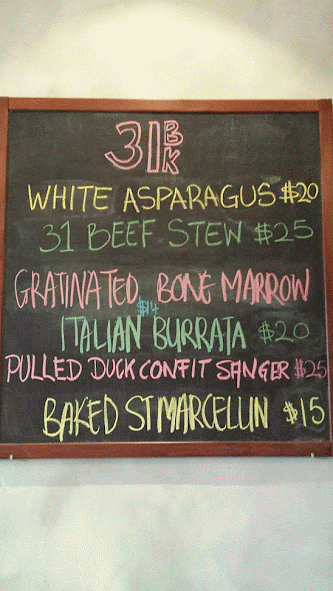 31 BK
WHITE ASPARAGUS $20
31 BEEF STEW $25
GRATINATED BONE MARROW
$14
ITALIAN BURRATA $20
PULLED DUCK CONFIT SANGER $25
BAKED ST MARCELLIN $15